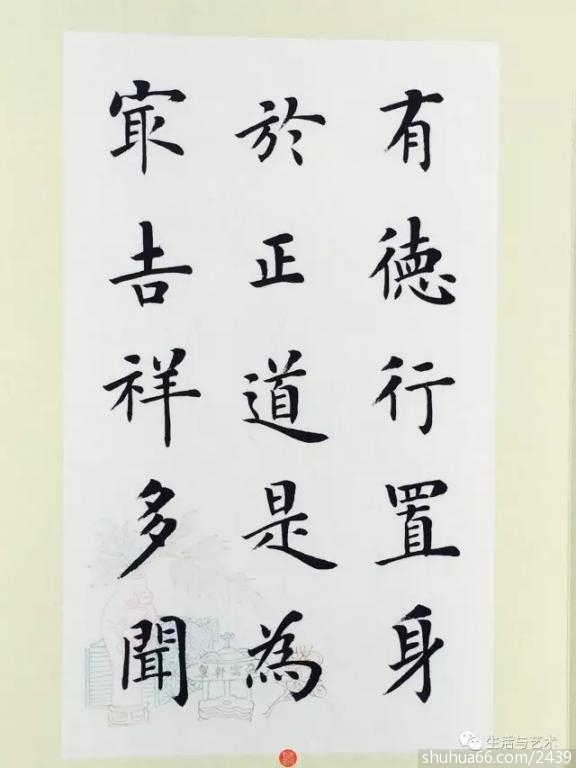 有德行置身
於正道是為
㝡吉祥多聞
生活与艺术
shuhua66.com/2439